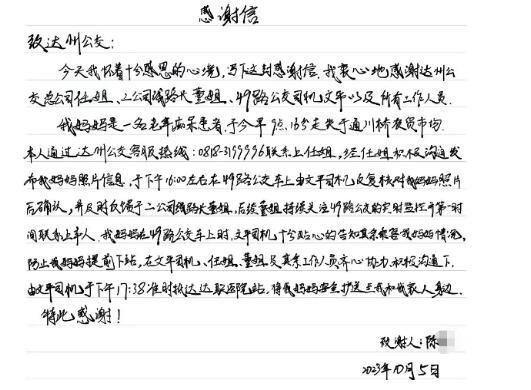 感谢信
致达州公交:
今天我怀着十分感恩的心境,写下这封感谢信。我衷心地感谢达州公
交总公司任姐、二公司线路长董姐、49路公交司机文平以及所有工作人员.
我妈妈是一名老年痴呆患者,于今早9点16分走失于通川桥农贸市场.
本人通过达州公交客服热线:0818-3199996联系上任姐,经任姐积极沟通发
布我妈妈照片信息,于下午16:00左右在49路公交车上由文平司机反复核对我妈妈照片
后确认,并及时反馈于二公司线路长董姐,后续董姐持续关注49路公交的实时监控并第一时
间联系上本人.我妈妈在49路公交车上时,文平司机十分贴心的告知其余乘客我妈妈情况,
防止我妈妈提前下站,在文平司机、任姐、董姐及其余工作人员齐心协力、积极沟通下.
由文平司机于下午17:38准时抵达达职医院站,将我妈妈安全护送至我和我家人身边.
特此感谢!
致谢人:陈
2023年10月5日